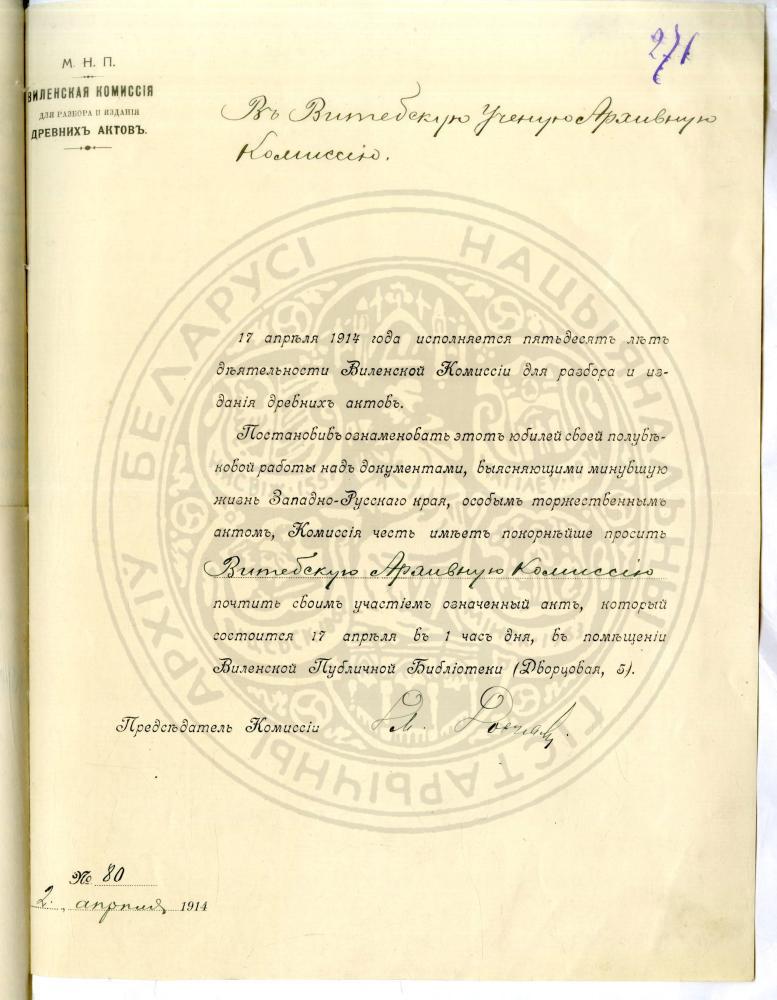 271
М. Н. П.
ВИЛЕНСКАЯ КОМИССІЯ
ДЛЯ РАЗБОРА И ИЗДАНІЯ
ДРЕВНИХЪ АКТОВЪ.
Въ Витебскую Ученую Архивную
Комиссію.
17 апрѣля 1914 года исполняется пятьдесятъ лѣтъ
дѣятельности Виленской Комиссіи для разбора и из-
данія древнихъ актовъ.
Постановивъ ознаменовать этотъ юбилей своей полувѣ-
ковой работы надъ документами, выясняющими минувшую
жизнь Западно-Русскаго края, особымъ торжественнымъ
актомъ, Комиссія честь имѣетъ покорнѣйше просить
Витебскую Архивную Комиссію
почтить своимъ участіемъ означенный актъ, который
состоится 17 апрѣля въ 1 часъ дня, въ помѣщеніи
Виленской Публичной Библіотеки (Дворцовая, 5).
Предсѣдатель Комиссіи
№ 80
2 апрѣля 1914
НАЦЫЯНАЛЬНЫ ГІСТАРЫЧНЫ АРХІЎ БЕЛАРУСІ